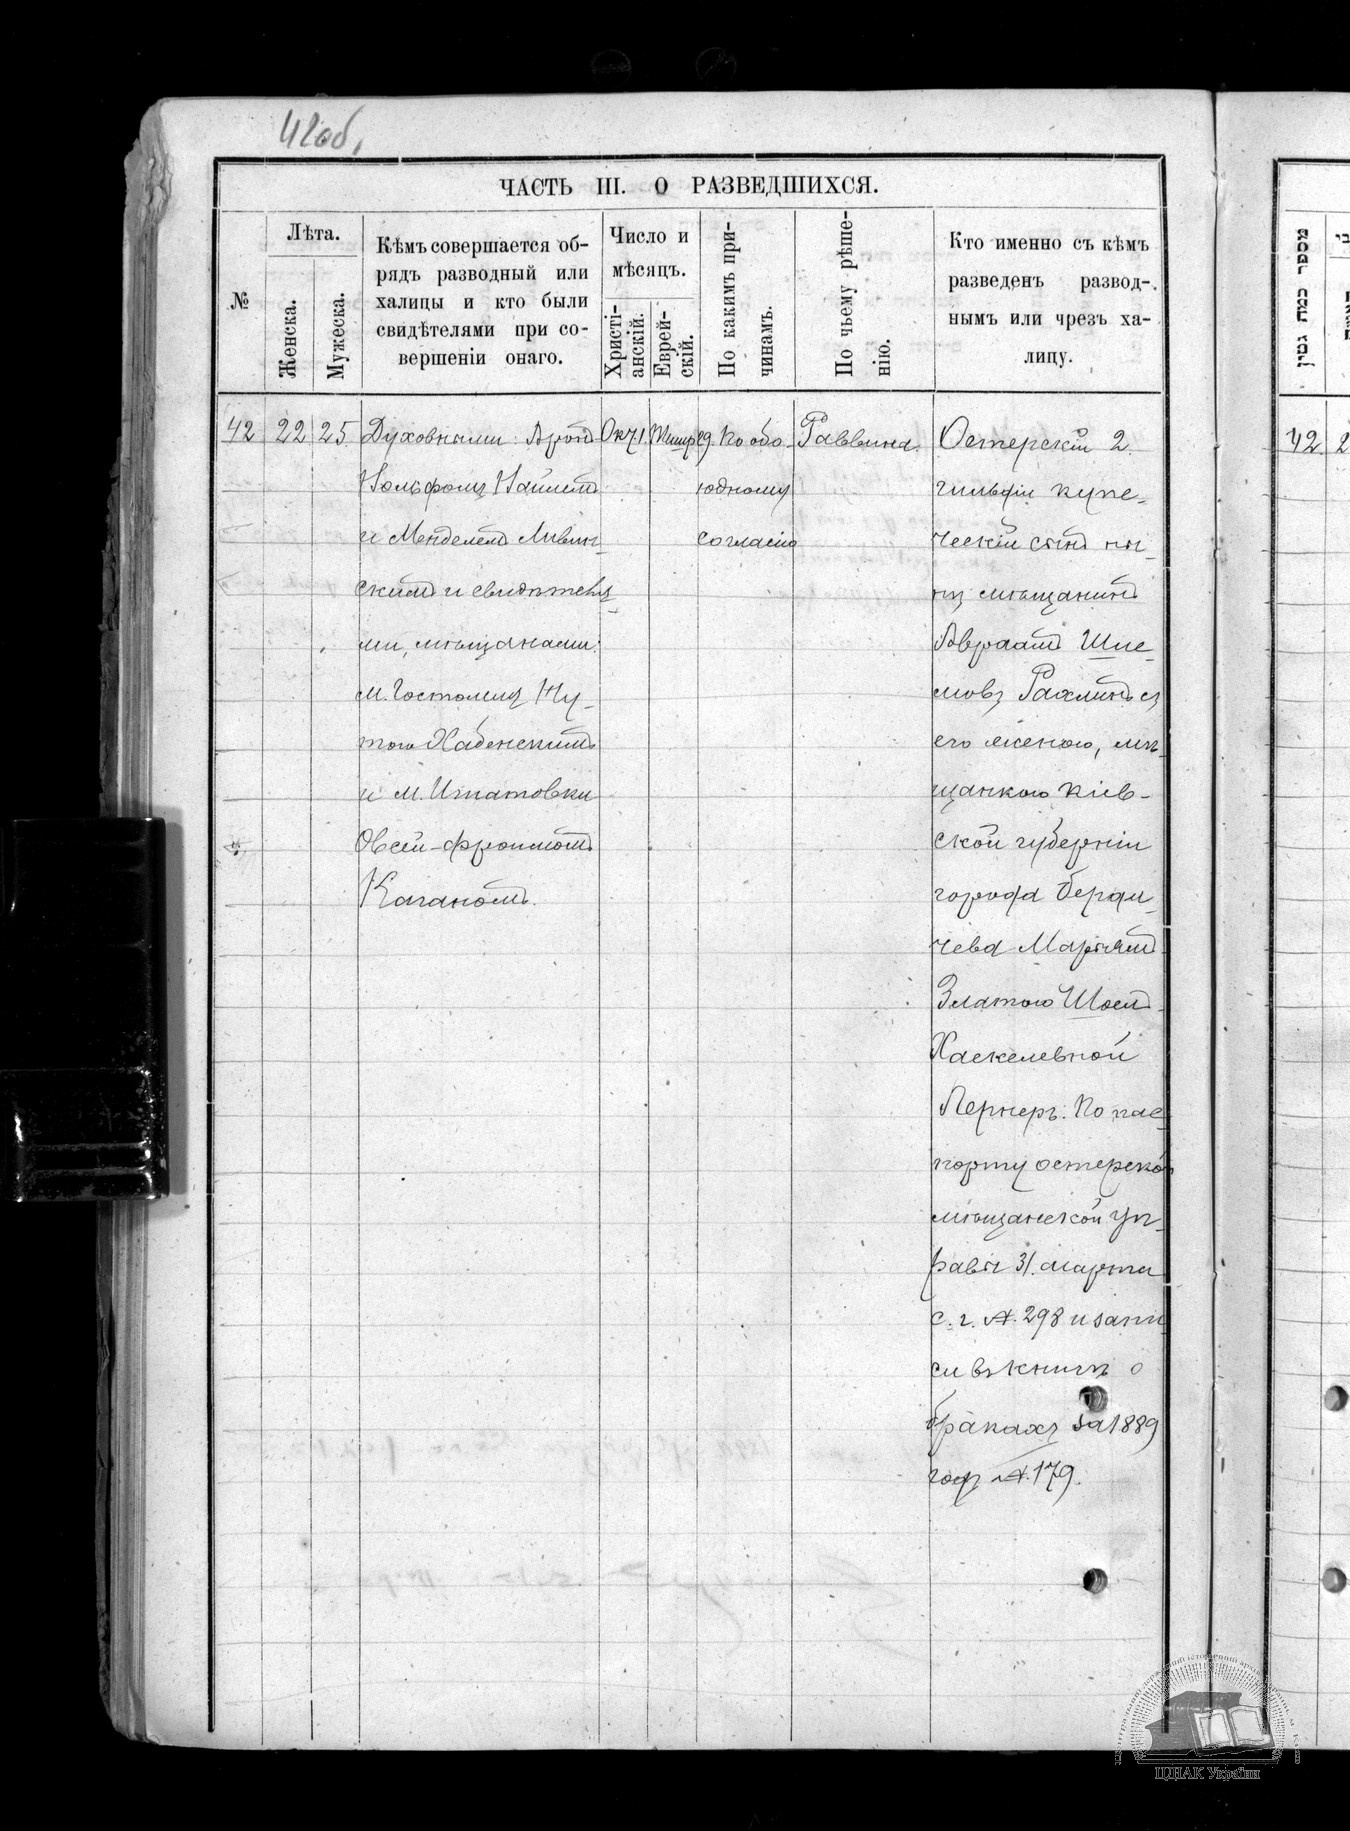 42об.
ЧАСТЬ III. О РАЗВЕДШИХСЯ.
№
Лѣта.
Женска.
Мужеска.
Кѣмъ совершается об-
рядъ разводный или
халицы и кто были
свидѣтелями при со-
вершеніи онаго.
Число и
мѣсяцъ.
Христі-
анскій.
Еврей-
скій.
По какимъ при-
чинамъ.
По чьему рѣше-
нію.
Кто именно съ кѣмъ
разведенъ развод-
нымъ или чрезъ ха-
лицу.
42
22
25
Духовными: Арон
и Менделем
ским и свидѣтеля-
ми, мѣщанами:
м. Гостомля
Хабенским
и м. Игнатовки
Овсей-Фроимом
Каганом.
Окт. 1.
Тишр. 29.
По обо-
юдному
согласію
Раввина.
Остерскій 2
гильдіи купе-
ческій сын ны-
нѣ мѣщанин
Авраам Шле-
мовъ Рахлин съ
его женою, мѣ-
щанкою Кіев-
ской губерніи
города Берди-
чева Маріям
Златою Шоел
Хаскелевной
Лернеръ. По пас-
порту остерской
мѣщанской уп-
равы 31 марта
с. г. № 298 и запи-
си въ книгѣ о
бракахъ за 1889
год № 179.
מספר כמה גטין
42
2
ЦДІАК України